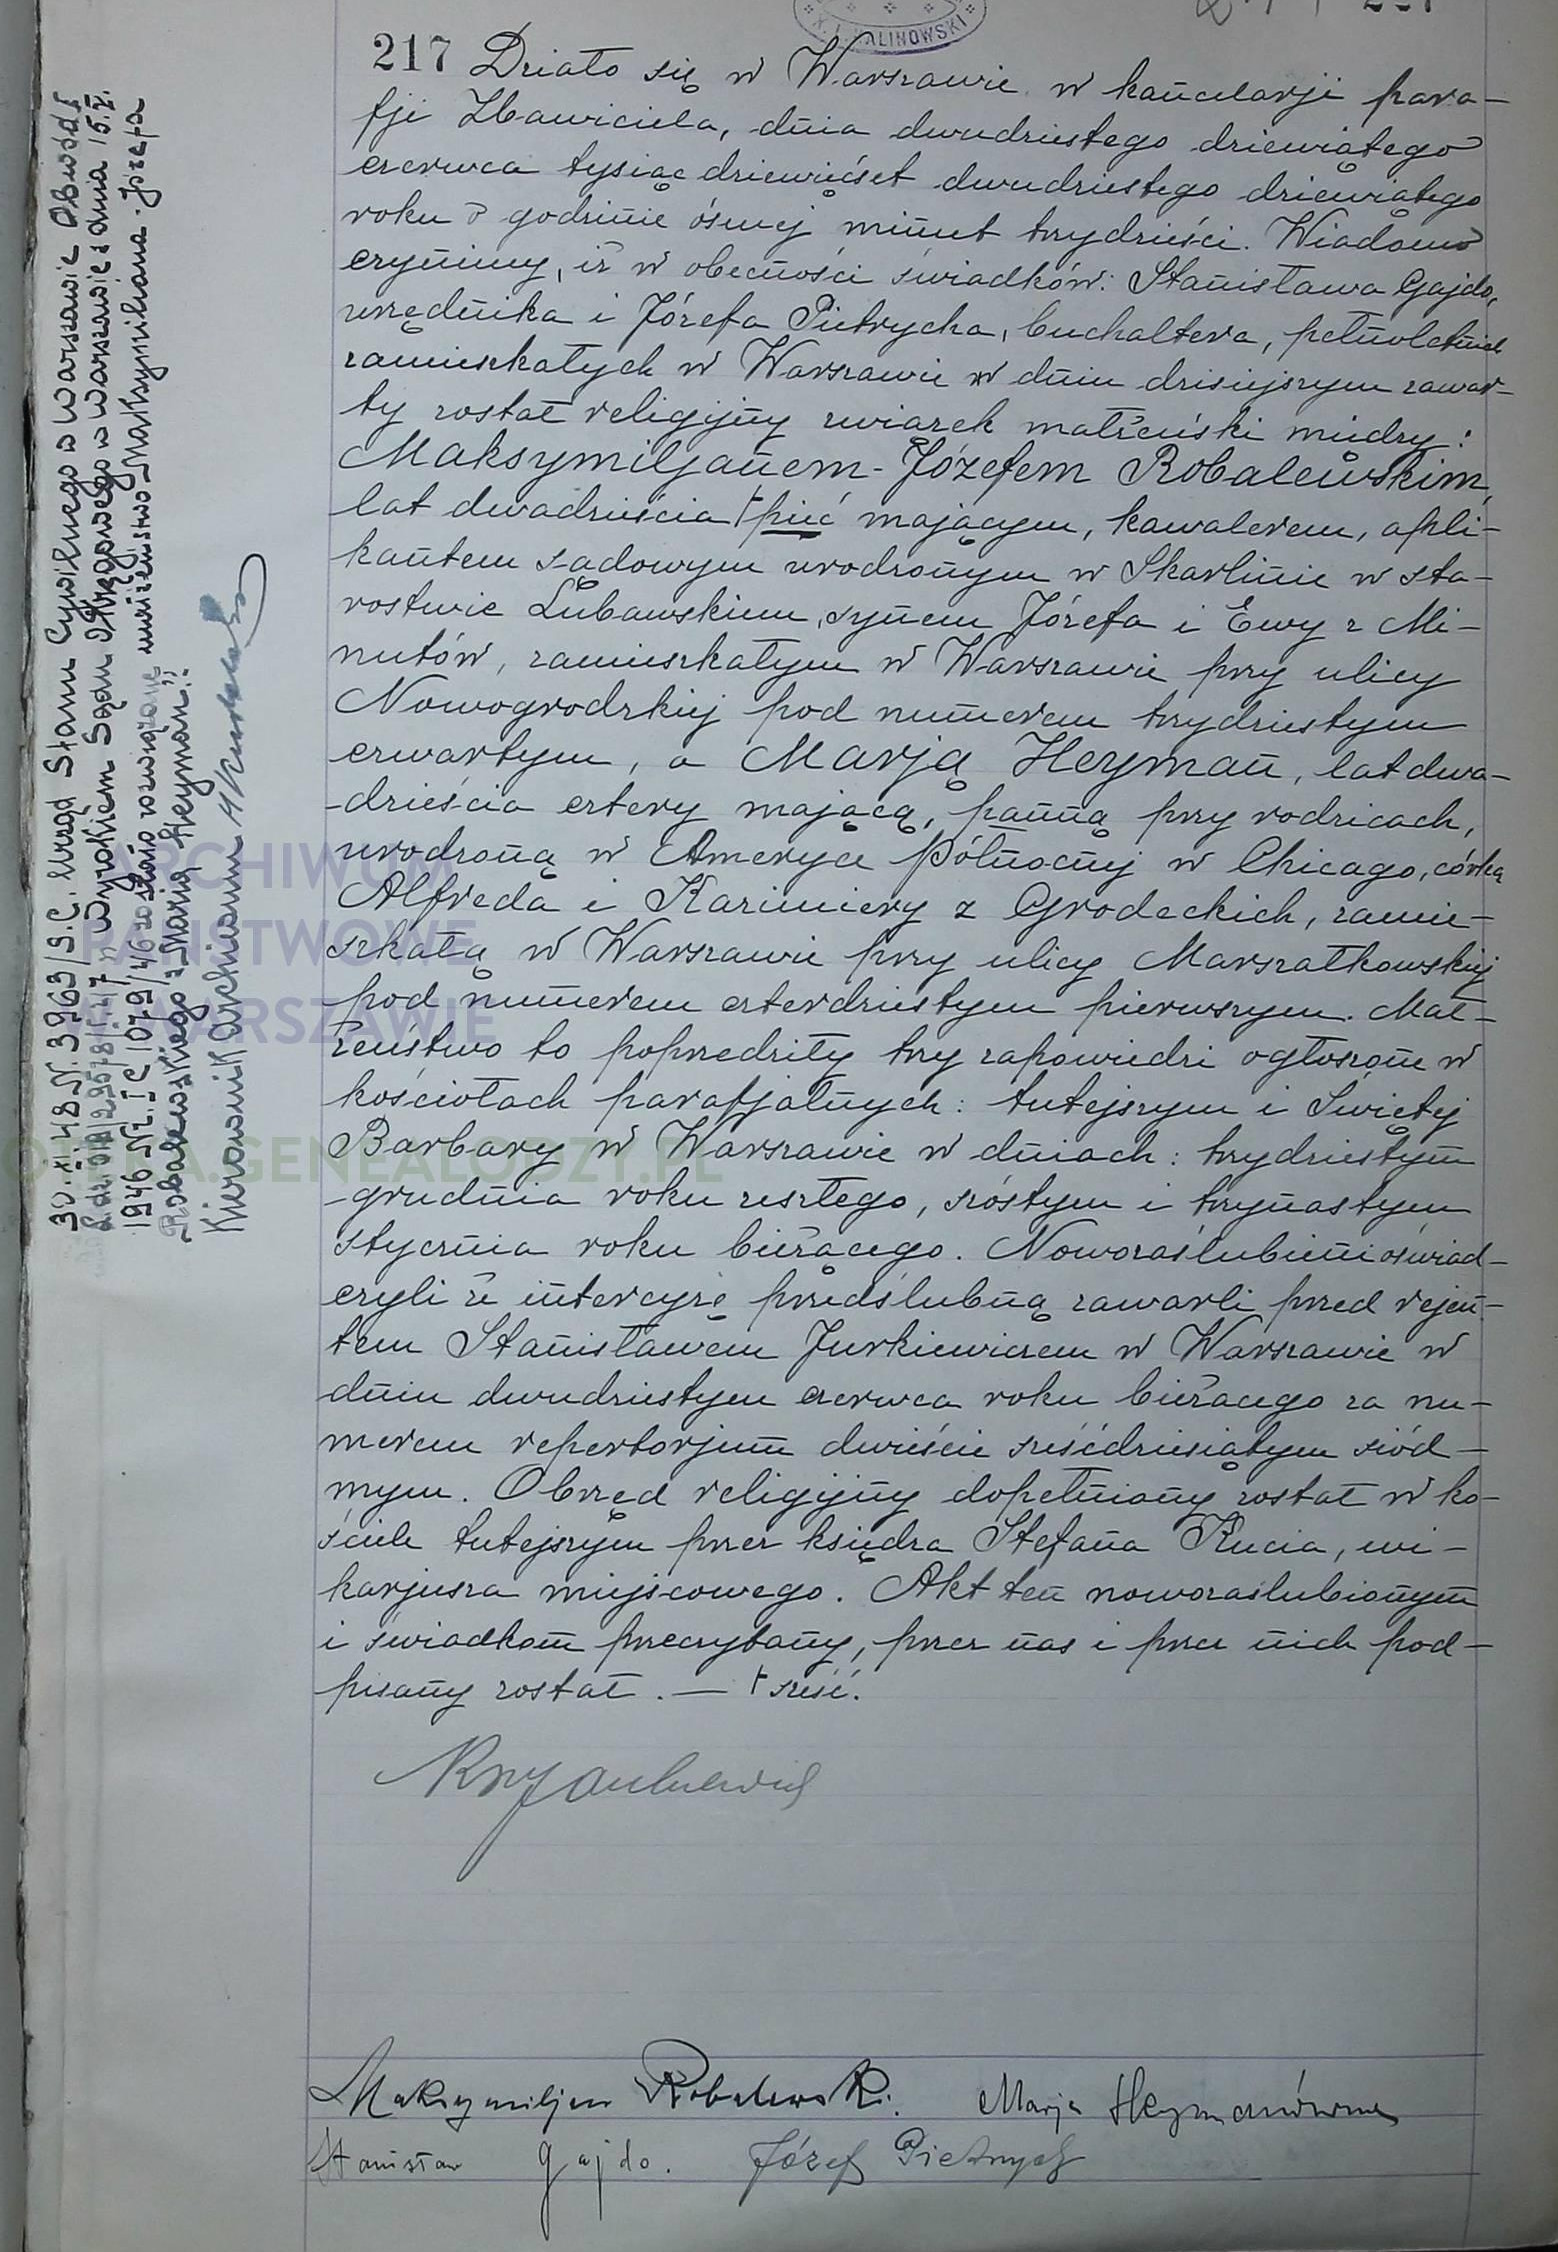 X. J. KALINOWSKI
217 Działo się w Warszawie w kancelarji para-
fji Zbawiciela, dnia dwudziestego dziewiątego
czerwca tysiąc dziewięćset dwudziestego dziewiątego
roku o godzinie ósmej minut trzydzieści. Wiadomo
czynimy, iż w obecności świadków: Stanisława Gajdo,
urzędnika i Józefa Pietrycha, buchaltera, pełnoletnich
zamieszkałych w Warszawie w dniu dzisiejszym zawar-
ty został religijny związek małżeński między:
Maksymiljanem-Józefem Robalewskim,
lat dwadzieścia + pięć mającym, kawalerem, apli-
kantem sądowym urodzonym w Skarlinie w sta-
rostwie Lubawskiem, synem Józefa i Ewy z Mi-
nutów, zamieszkałym w Warszawie przy ulicy
Nowogrodzkiej pod numerem trzydziestym
czwartym, a Marją Heyman, lat dwa-
dzieścia cztery mającą, panną przy rodzicach,
urodzoną w Ameryce Północnej w Chicago, córką
Alfreda i Kazimiery z Grodeckich, zamie-
szkałą w Warszawie przy ulicy Marszałkowskiej
pod numerem czterdziestym pierwszym. Mał-
żeństwo to poprzedziły trzy zapowiedzi ogłoszone w
kościołach parafjalnych: tutejszym i Świętej
Barbary w Warszawie w dniach: trzydziestym
grudnia roku zeszłego, szóstym i trzynastym
stycznia roku bieżącego. Nowozaślubieni oświad-
czyli że intercyzę przedślubną zawarli przed rejen-
tem Stanisławem Jurkiewiczem w Warszawie w
dniu dwudziestym czerwca roku bieżącego za nu-
merem repertorjum dwieście sześćdziesiątym siód-
mym. Obrzęd religijny dopełniony został w ko-
ściele tutejszym przez księdza Stefana Kucia, wi-
karjusza miejscowego. Akt ten nowozaślubionym
i świadkom przeczytany, przez nas i przez nich pod-
pisany został. — + sześć.
Maksymiljan Robalewski. Marja Heymanówna
Stanisław Gajdo. Józef Pietrych
30.XI.48 N. 3963/S.C. Urząd Stanu Cywilnego w Warszawie Obwód I
Wyrokiem Sądu Okręgowego w Warszawie z dnia 15.X.
1946 Nr. I C 1079/46 zostało rozwiązane małżeństwo Maksymiliana-Józefa
Robalewskiego z Marią Heyman".
Kierownik Archiwum
ARCHIWUM
PAŃSTWOWE
W WARSZAWIE
GENEALODZY.PL